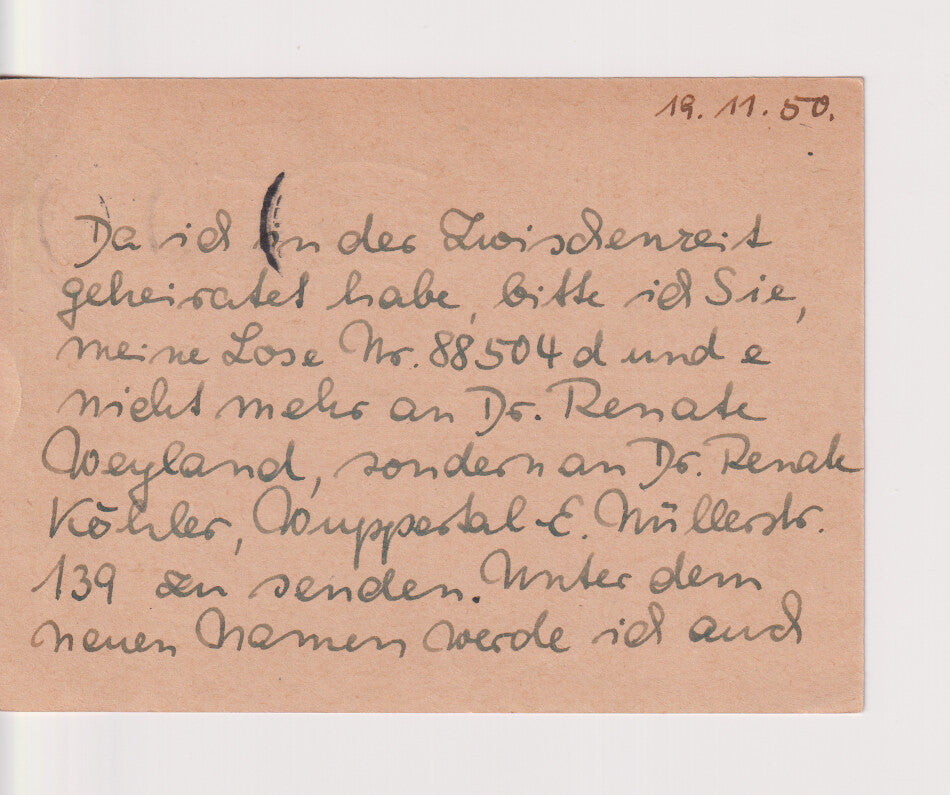 19. 11. 50.
Da ich in der Zwischenzeit
geheiratet habe, bitte ich Sie,
meine Lose Nr. 88504 d und e
nicht mehr an Dr. Renate
Weyland, sondern an Dr. Renate
Köhler, Wuppertal-E. Müllerstr.
139 zu senden. Unter dem
neuen Namen werde ich auch